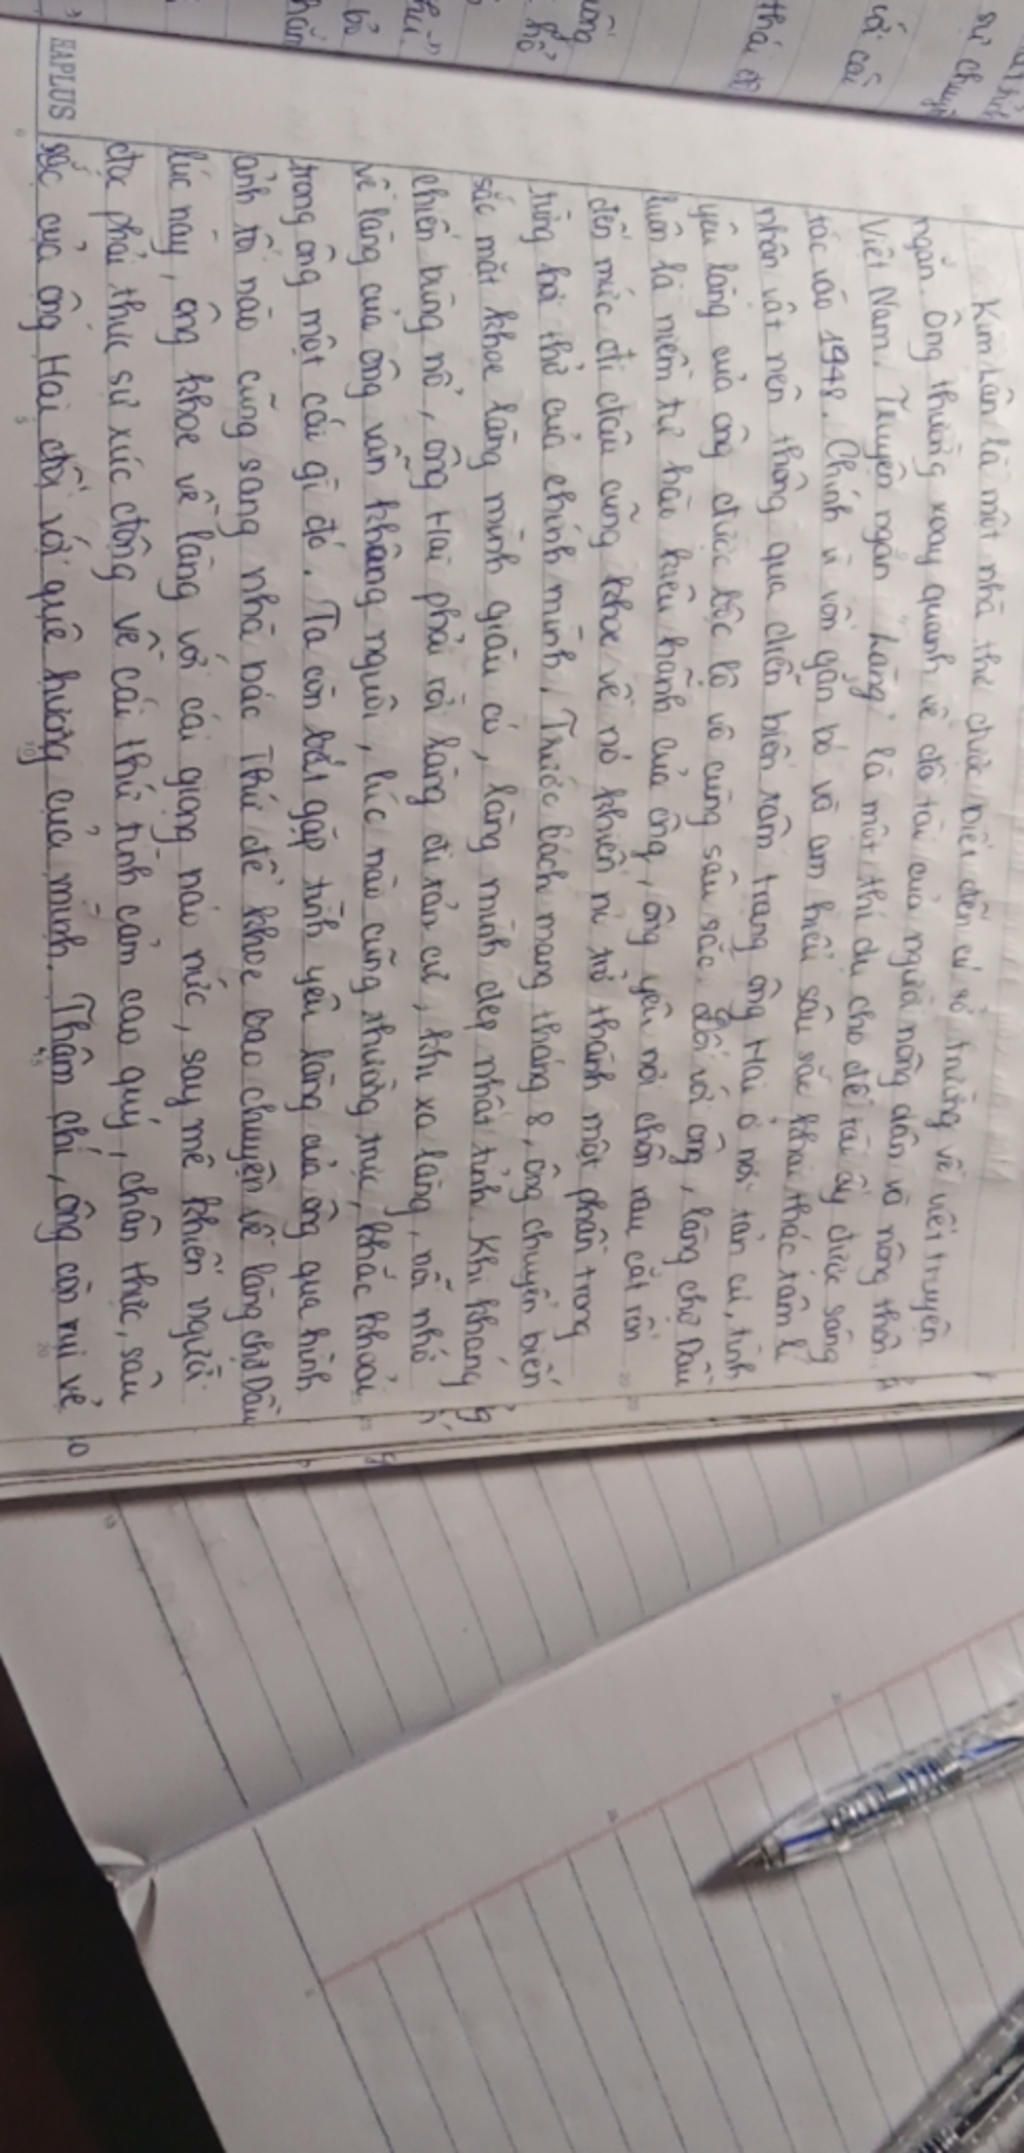 Kim Lân là một nhà thơ được biết đến có sở trường về viết truyện
ngắn. Ông thường xoay quanh về đề tài của người nông dân và nông thôn
Việt Nam. Truyện ngắn "Làng" là một thí dụ cho đề tài ấy được sáng
tác vào 1948. Chính vì vốn gắn bó và am hiểu sâu sắc khai thác tâm lí
nhân vật nên thông qua diễn biến tâm trạng ông Hai ở nơi tản cư, tình
yêu làng của ông được bộc lộ vô cùng sâu sắc. Đối với ông, làng chợ Dầu
luôn là niềm tự hào kiêu hãnh của ông, ông yêu nơi chôn rau cắt rốn
đến mức đi đâu cũng khoe về nó khiến nó trở thành một phần trong
từng hơi thở của chính mình. Trước Cách mạng tháng 8, ông chuyển biến
sắc mặt khoe làng mình giàu có, làng mình đẹp nhất tỉnh. Khi kháng
chiến bùng nổ, ông Hai phải rời làng đi tản cư, khi xa làng, nỗi nhớ
về làng của ông vẫn không nguôi, lúc nào cũng thường trực, khắc khoải
trong ông một cái gì đó. Ta còn bắt gặp tình yêu làng của ông qua hình
ảnh tối nào cũng sang nhà bác Thứ để khoe bao chuyện về làng chợ Dầu
lúc này, ông khoe về làng với cái giọng náo nức, say mê khiến người
đọc phải thực sự xúc động về cái thứ tình cảm cao quý, chân thực, sâu
sắc của ông Hai đối với quê hương của mình. Thậm chí, ông còn vui vẻ
HAPLUS
sự chuyện
với câu
thái độ
hổ